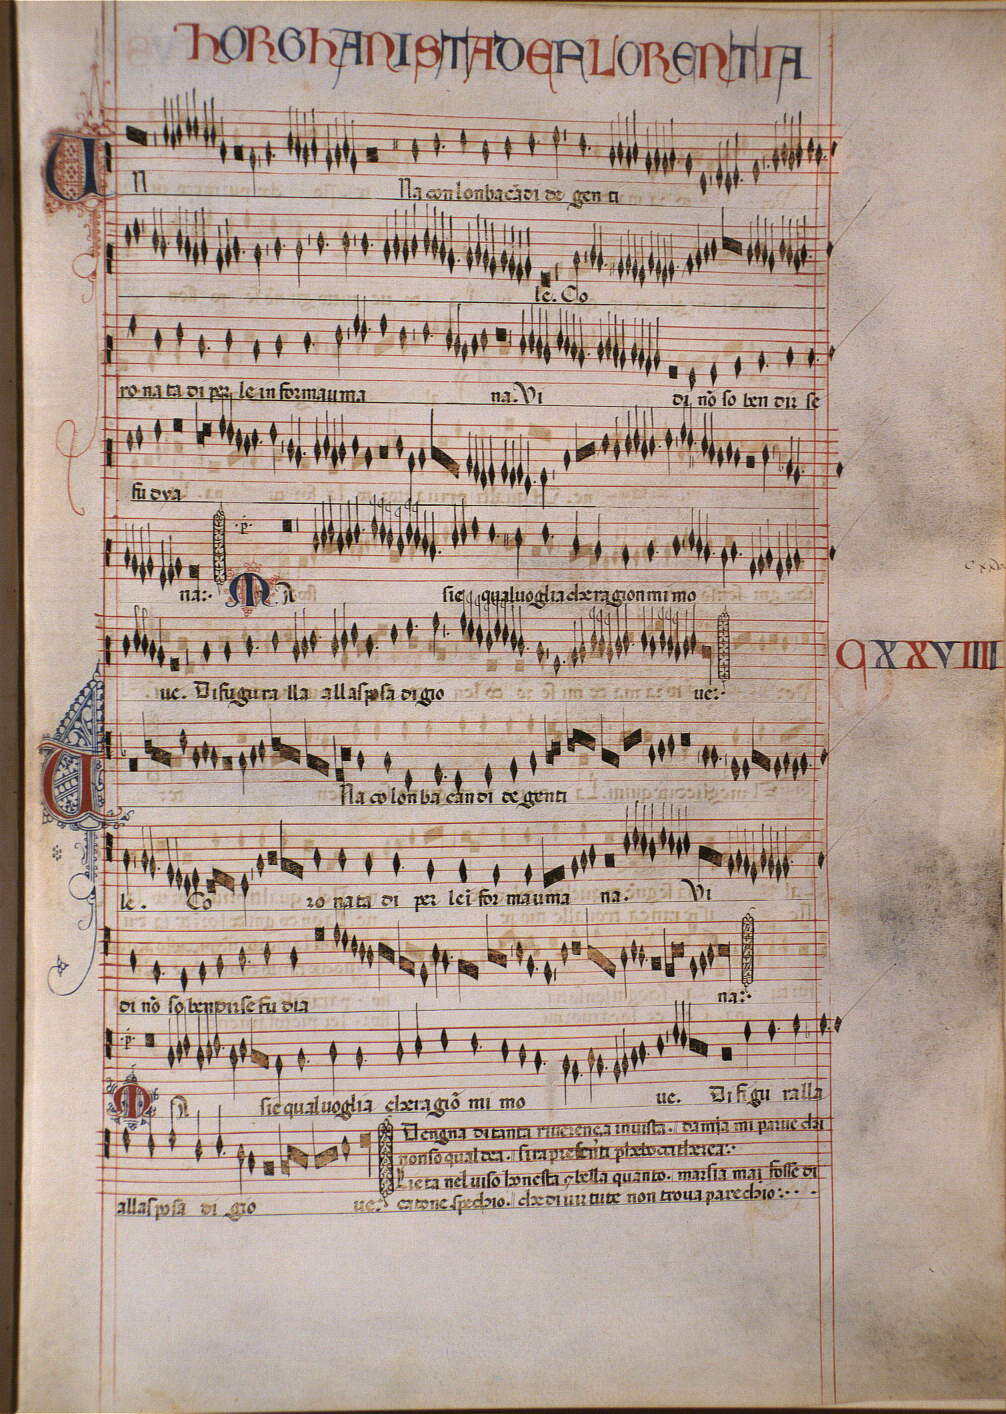 HORGHANISTA DE FLORENTIA
U N Na con lonba cādi de gen ti
le. Co
ro na ta di per le in for ma uma na. Vi di nō so ben dir se
fu dva
na:. M A sie qual uoglia che ra gion mi mo
CXXVIIII
ue. Di fi gu ra lla alla sposa di gio ue:.
U Na co lon ba can di de gen ti
le. Co ro na ta di per le i for ma uma na. Vi
di nō so ben dir se fu dia na:.
M A sie qual uoglia che ra giō mi mo ue. Di fi gu ra lla
alla sposa di gio ue:.
Dengna di tanta riuerença in uista. damja mi parue chi
non so qual dea.
Lieta nel uiso honesta bella quanto. marsia mai fosse di
catone spechio. che di uirtute non troua parechio:.